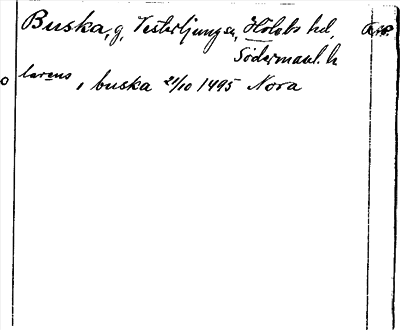 Buska, g, Vesterljung sn, Hölebo hd,
Södermanl. l.
larens, i buska 21/10 1495 Nora